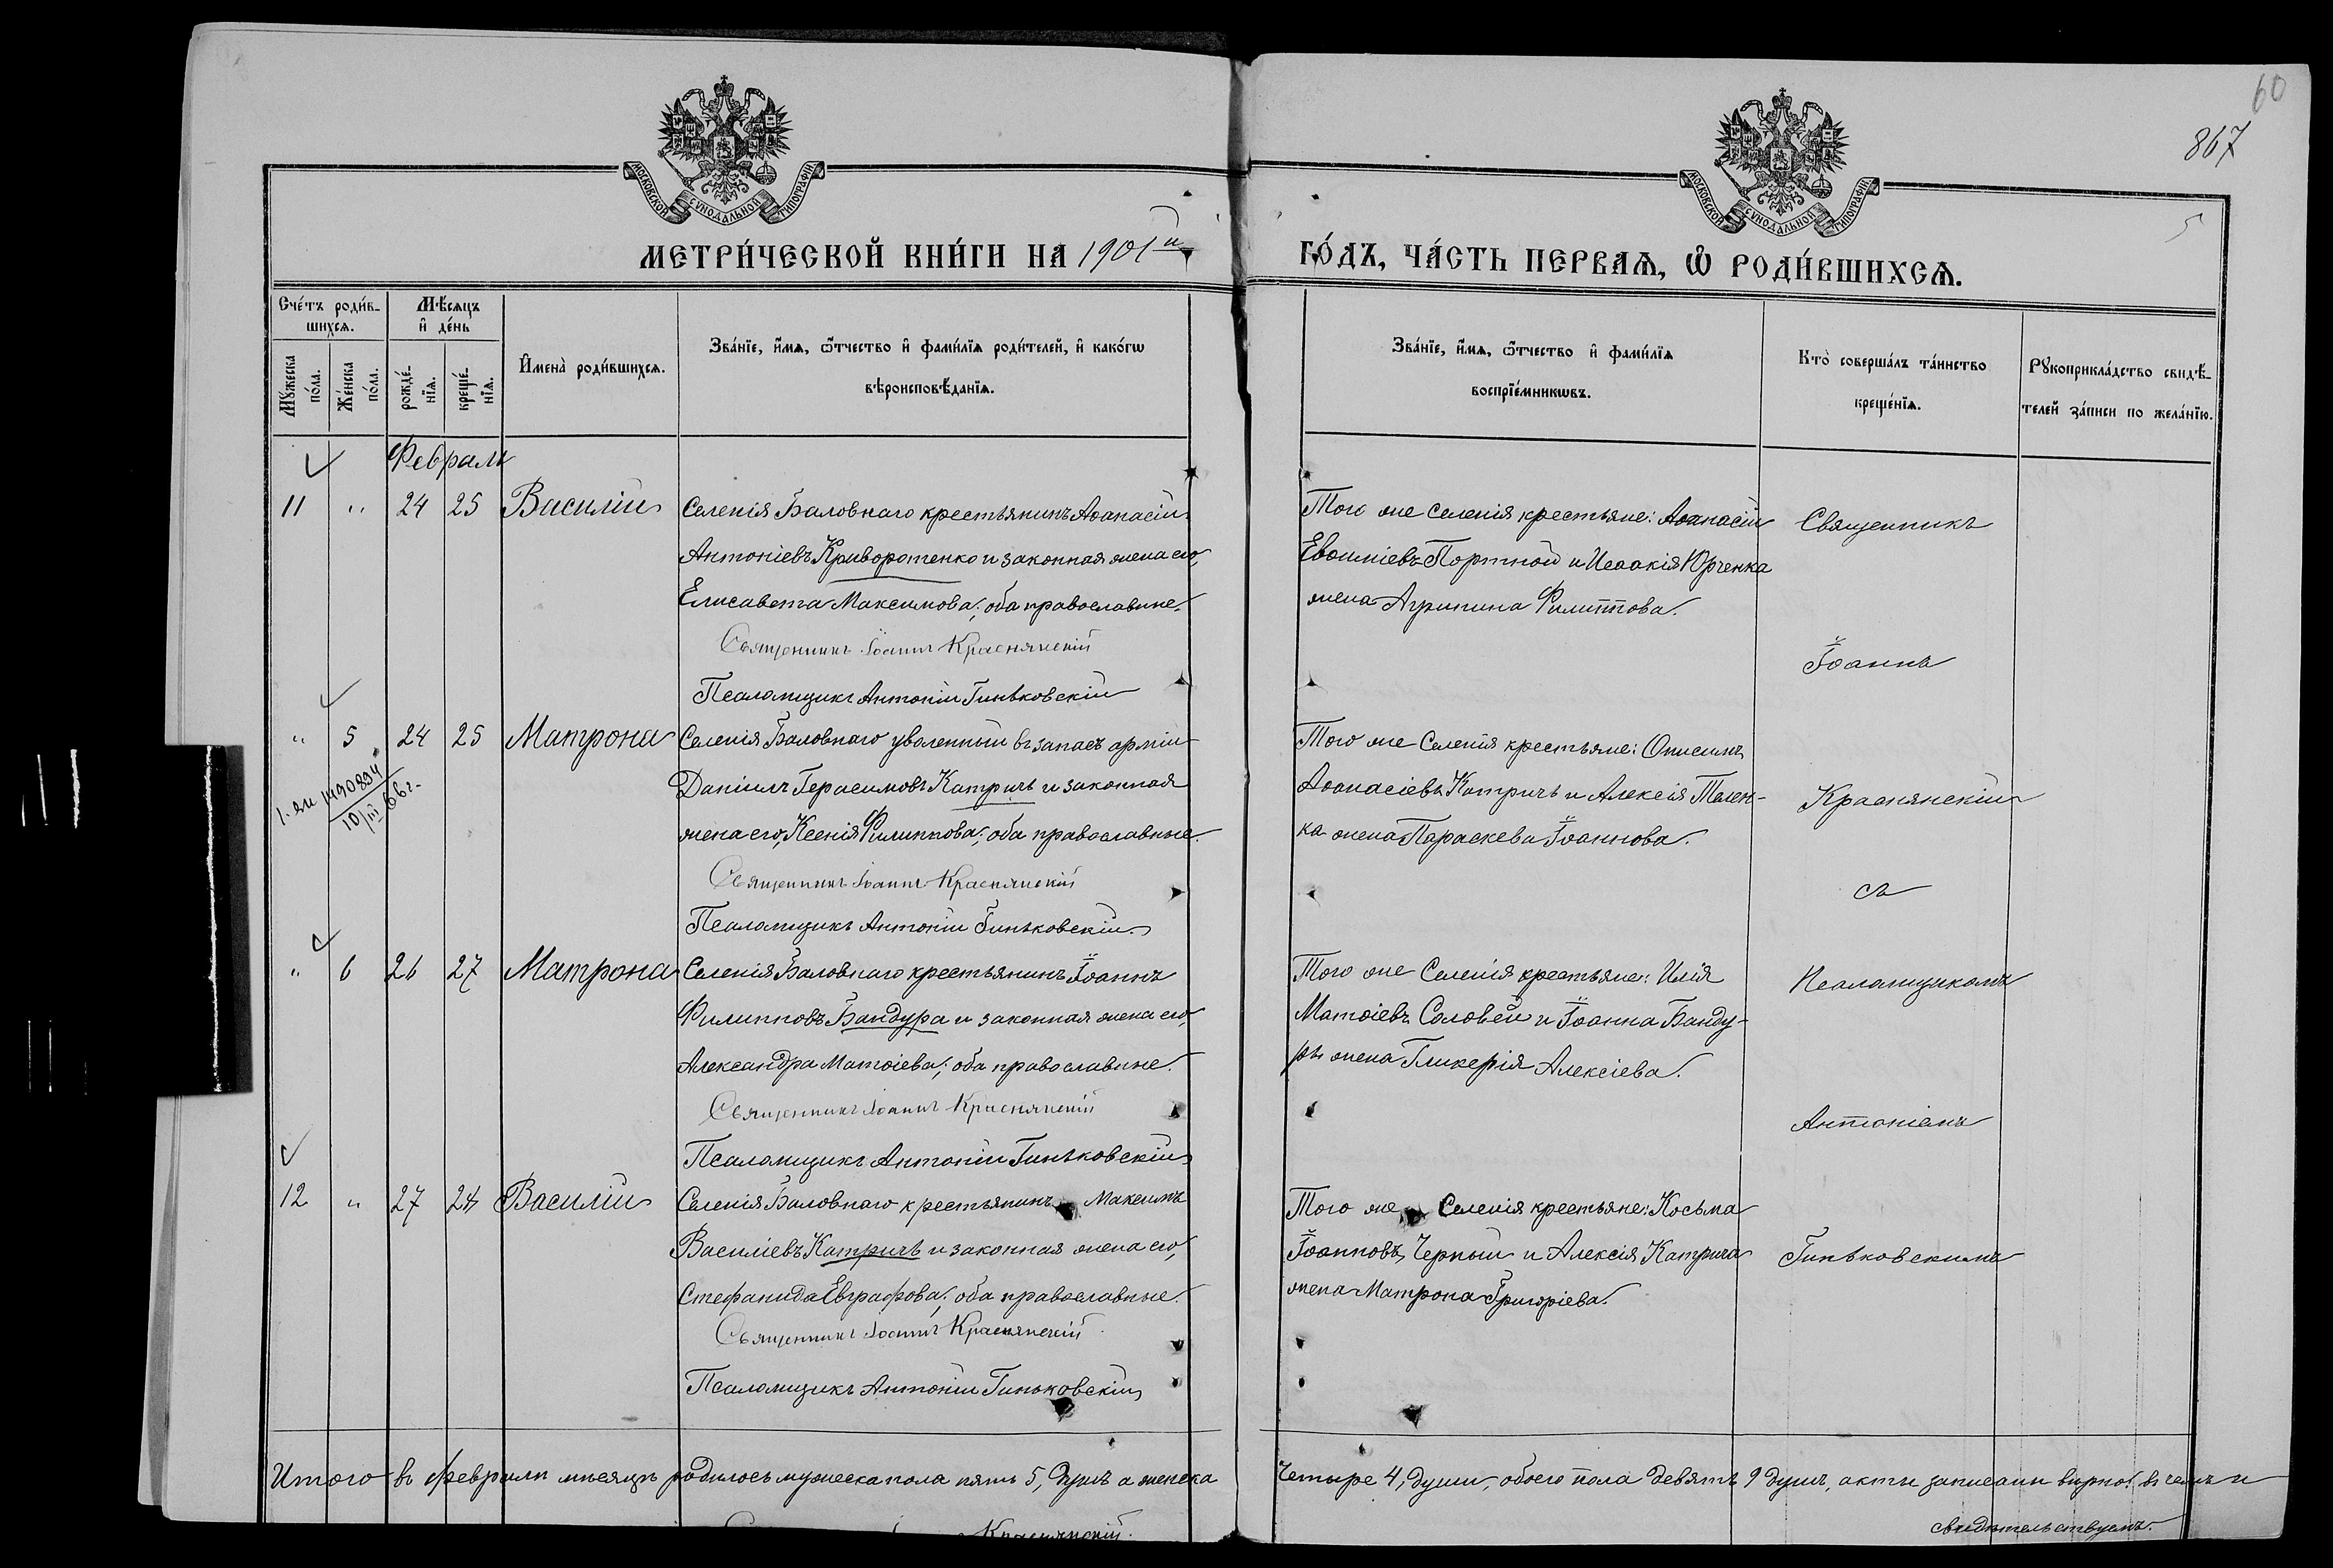 60
867
5
МОСКОВСКОЙ СѴНОДАЛЬНОЙ ТИПОГРАФІИ
МОСКОВСКОЙ СѴНОДАЛЬНОЙ ТИПОГРАФІИ
МЕТРИ́ЧЕСКОЙ КНИ́ГИ НА 1901й
ГО́ДЪ, ЧА́СТЬ ПЕРВАѦ, Ѽ РОДИ́ВШИХСѦ.
Сче́тъ роди́в-
шихсѧ.
Мѣ́сѧцъ
и҆ де́нь
Мꙋ́жеска
по́ла.
Же́нска
по́ла.
рожде́-
нїѧ.
креще́-
нїѧ.
И҆мена̀ роди́вшихсѧ.
Зва́нїе, и҆́мѧ, ѻ҆́тчество и҆ фами́лїѧ роди́телей, и҆ како́гѡ
вѣроисповѣ́данїѧ.
Зва́нїе, и҆́мѧ, ѻ҆́тчество и҆ фами́лїѧ
воспрїе́мникѡвъ.
Кто̀ соверша́лъ та́инство
креще́нїѧ.
Рꙋкоприкла́дство свидѣ́-
телей за́писи по жела́нїю.
Февраль
11 " 24 25 Василій Селенія Баловнаго крестьянинъ Аѳанасій
Антоніевъ Криворотенко и законная жена его,
Елисавета Максимова; оба православные.
Священникъ Іоаннъ Краснянскій
Псаломщикъ Антоній Гиньковскій
Того же селенія крестьяне: Аѳанасій
Евѳиміевъ Портной и Исаакія Юрченка
жена Агрипина Филиппова.
" 5 24 25 Матрона Селенія Баловнаго уволенный въ запасъ арміи
Даніилъ Герасимовъ Катричъ и законная
жена его, Ксенія Филиппова; оба православные.
Священникъ Іоаннъ Краснянскій
Псаломщикъ Антоній Гиньковскій
1490894
10/III 66 г.
Того же Селенія крестьяне: Онисимъ
Аѳанасіевъ Катричъ и Алексія Телен-
ка жена Параскева Іоаннова.
" 6 26 27 Матрона Селенія Баловнаго крестьянинъ Іоаннъ
Филипповъ Бандура и законная жена его,
Александра Матѳіева; оба православные.
Священникъ Іоаннъ Краснянскій
Псаломщикъ Антоній Гиньковскій
Того же Селенія крестьяне: Илія
Матѳіевъ Соловей и Іоанна Банду-
ры жена Гликерія Алексіева.
12 " 27 28 Василій Селенія Баловнаго крестьянинъ Максимъ
Василіевъ Катричъ и законная жена его,
Стефанида Евграфова; оба православные.
Священникъ Іоаннъ Краснянскій
Псаломщикъ Антоній Гиньковскій
Того же Селенія крестьяне: Косьма
Іоанновъ Черный и Алексія Катрича
жена Матрона Григоріева.
Священникъ
Іоаннъ
Краснянскій
съ
Псаломщикомъ
Антоніемъ
Гиньковскимъ
Итого въ февралѣ мѣсяцѣ родилось мужеска пола пять 5, душъ а женска
четыре 4, души, обоего пола девять 9 душъ, акты записаны вѣрно: въ чемъ и
свидѣтельствуемъ.
Краснянскій